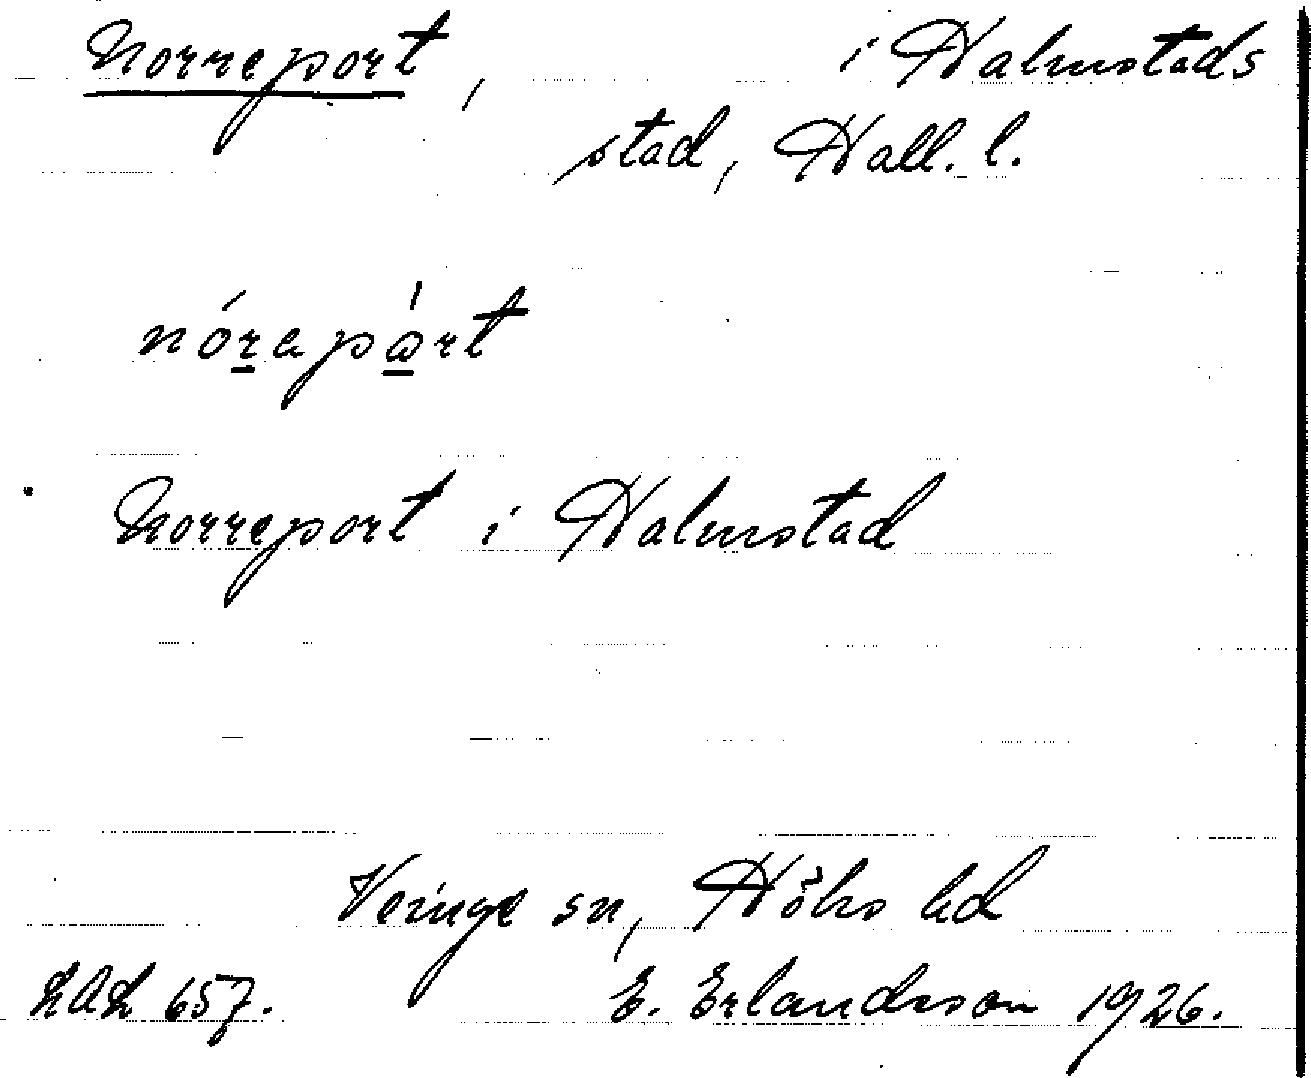 Norreport, i Halmstads
stad, Hall. l.
nórapårt
Norreport i Halmstad
Veinge sn, Höks hd
LAL 657. E. Erlandsson 1926.